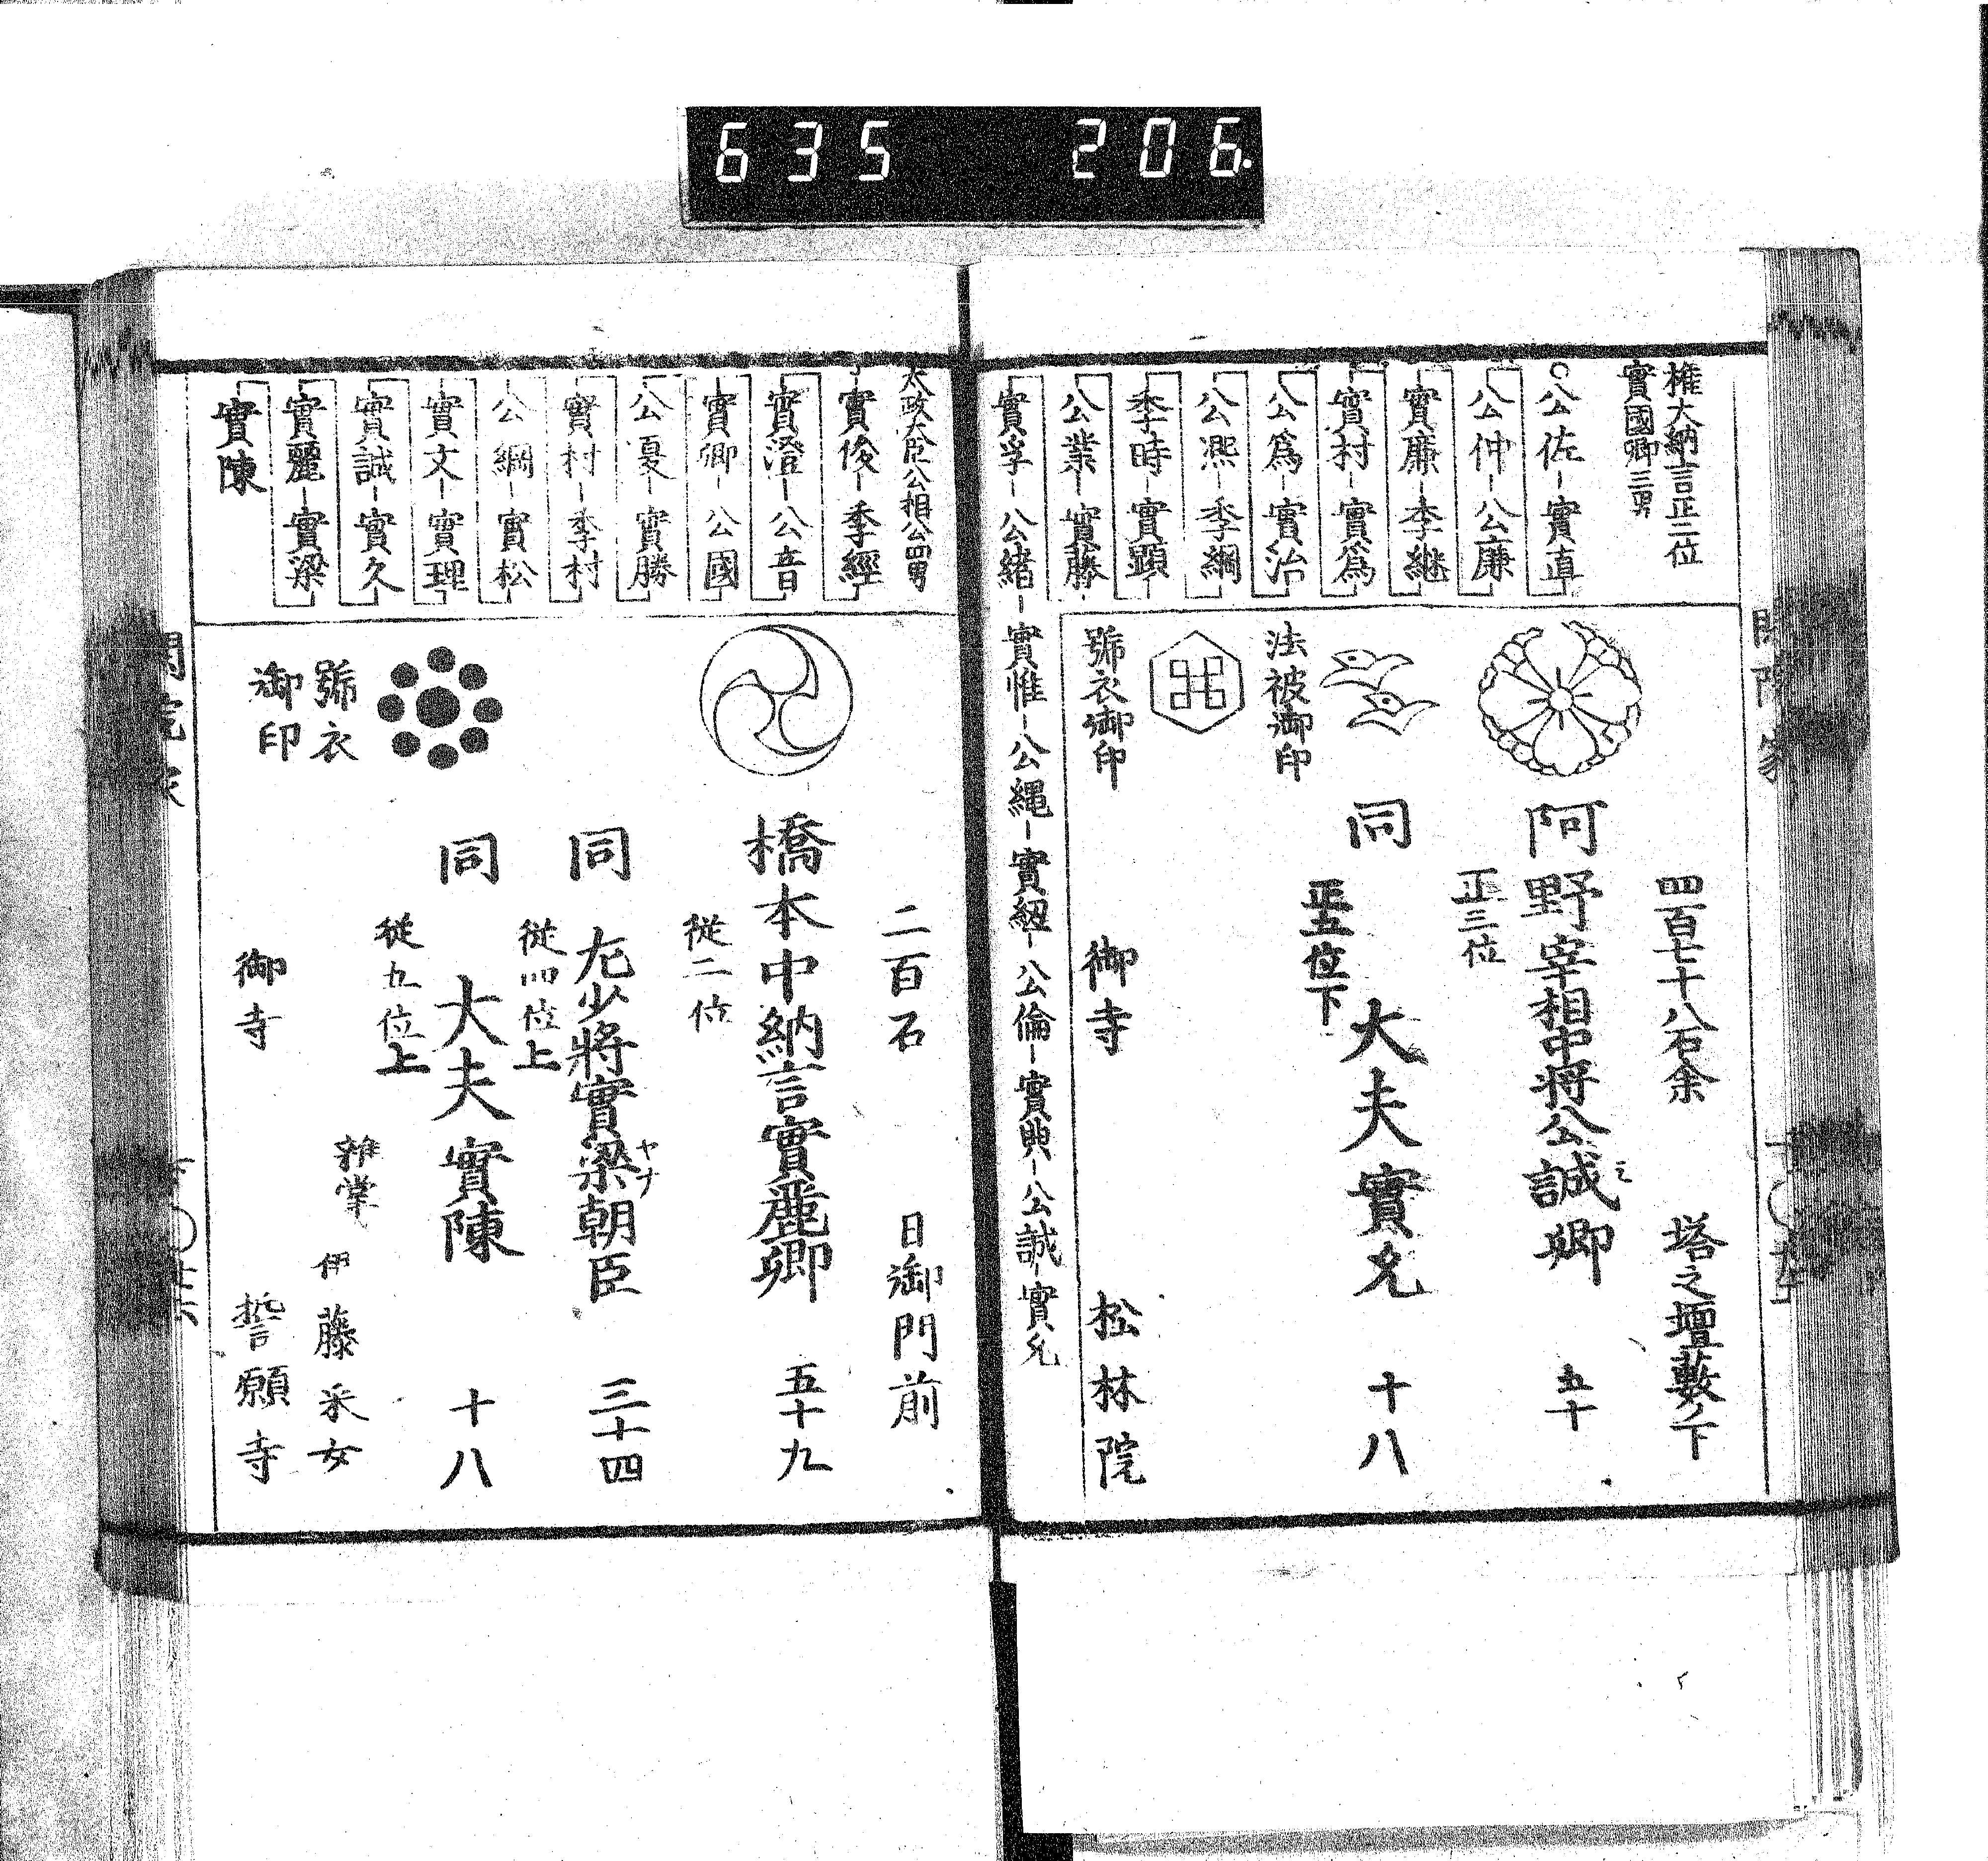 635 206.
權大納言正二位
實國卿三男
公佐-實直
公仲-公廉
實廉-季継
實村-實為
公為-實治
公凞-季綱
季時-實顕
公業-實藤
實孚-公緒-實惟-公縄-實紐-公倫-實典-公誠-實允
四百七十八石余 塔之壇藪ノ下
阿野宰相中将公誠卿 五十
正三位
同 大夫實允 十八
正五位下
法被御印
號衣御印
御寺 松林院
太政大臣公相公四男
實俊-季經
實澄-公音
實卿-公國
公夏-實勝
實村-季村
公綱-實松
實文-實理
實誠-實久
實麗-實梁
實陳
二百石 日御門前
橋本中納言實麗卿 五十九
従二位
同 左少將實梁朝臣 三十四
ヤナ
従四位上
同 大夫實陳 十八
従五位上
雜掌 伊藤采女
號衣
御印
御寺 誓願寺